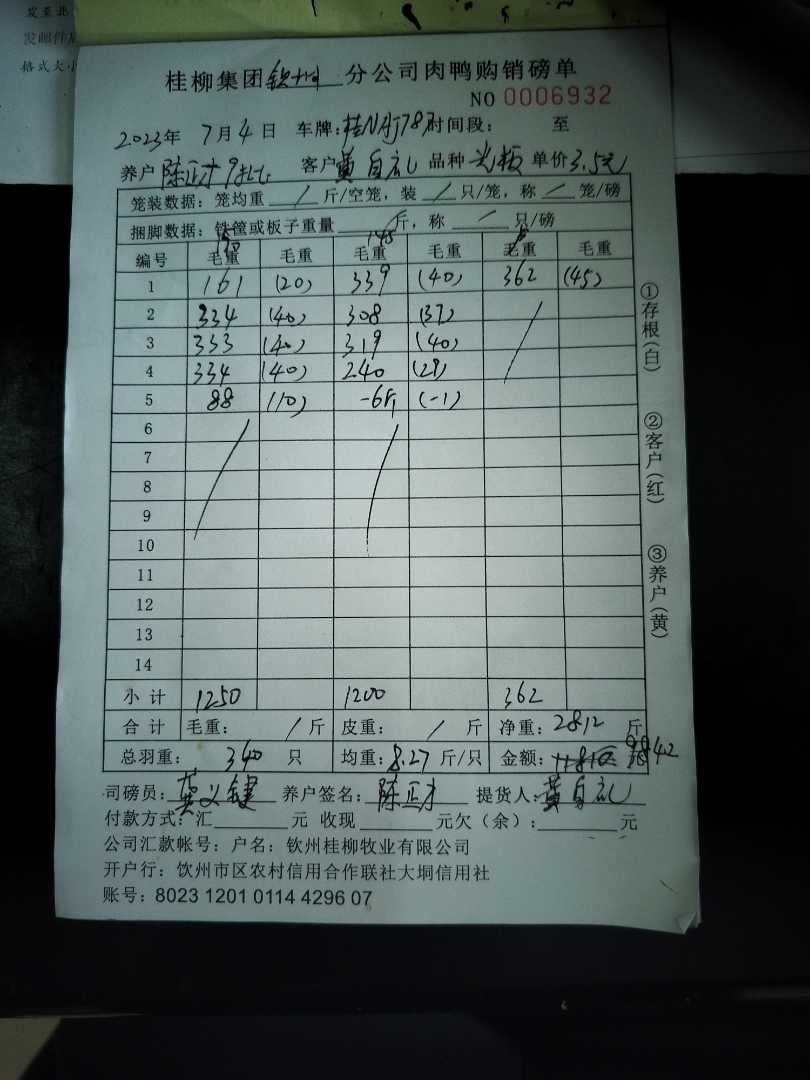 发至北
发邮件
格式大小
桂柳集团钦州分公司肉鸭购销磅单
NO 0006932
2023年 7月 4日 车牌: 时间段: 至
养户 陈正才9批 客户 黄自礼 品种 光板 单价 3.5元
笼装数据: 笼均重 / 斤/空笼, 装 / 只/笼, 称 / 笼/磅
捆脚数据: 铁筐或板子重量 斤, 称 / 只/磅
编号 毛重 毛重 毛重 毛重 毛重 毛重
1 161 (20) 339 (40) 362 (45)
2 334 (40) 308 (37)
3 333 (40) 319 (40)
4 334 (40) 240 (29)
5 88 (10) -6斤 (-1)
6
7
8
9
10
11
12
13
14
小计 1250 1200 362
合计 毛重: / 斤 皮重: / 斤 净重: 2812 斤
总羽重: 340 只 均重: 8.27 斤/只 金额: 9842
司磅员: 莫义键 养户签名: 陈正才 提货人: 黄自礼
付款方式: 汇 元 收现 元欠(余): 元
公司汇款帐号: 户名: 钦州桂柳牧业有限公司
开户行: 饮州市区农村信用合作联社大垌信用社
账号: 8023 1201 0114 4296 07
①存根(白)
②客户(红)
③养户(黄)